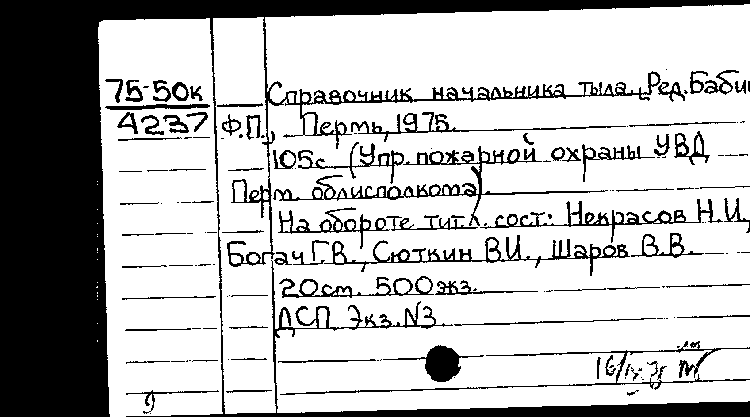 75-50к Справочник начальника тыла. Ред. Бабин
4237 Ф.П., Пермь, 1975.
105с (Упр. пожарной охраны УВД
Перм. облисполкома).
На обороте тит. л. сост: Некрасов Н.И.,
Богач Г.В., Сюткин В.И., Шаров В.В.
20 cm. 500 экз.
ДСП Экз. N3
9